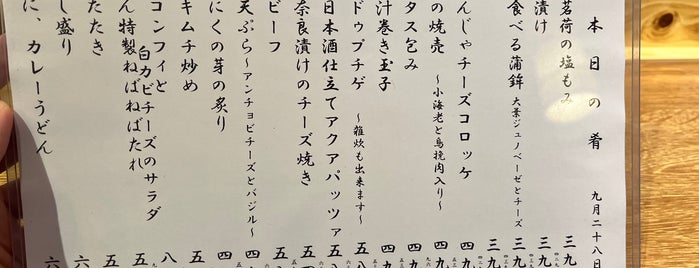 本日の肴 九月二十八日
茗荷の塩もみ 三九
漬け 三九
食べる蒲鉾 大葉ジェノベーゼとチーズ 三九
んじゃチーズコロッケ 四九
の焼売 〜小海老と鳥挽肉入り〜 四九
タス包み 四九
汁巻き玉子 四九
ドゥブチゲ 〜雑炊も出来ます〜 五八
日本酒仕立てアクアパッツァ 五八
奈良漬けのチーズ焼き 五
ビーフ 五
天ぷら〜アンチョビチーズとバジル〜 四
にくの芽の炙り 四
キムチ炒め 五
コンフィと白カビチーズのサラダ 八
ん特製ねばねばたれ 五
たたき 五
し盛り 六
に、カレーうどん 六